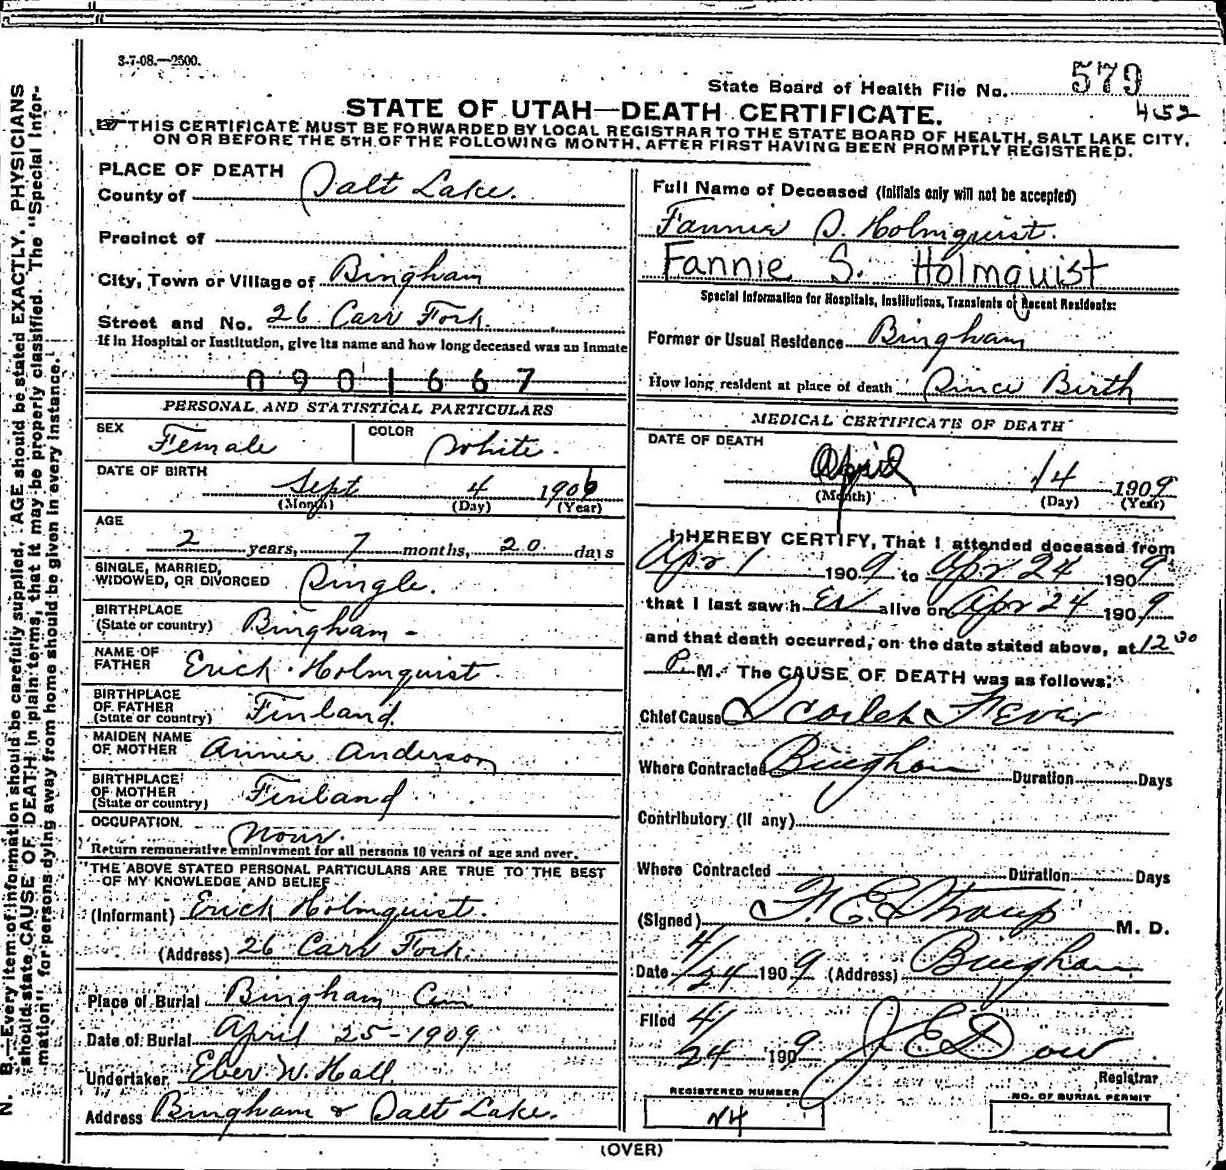 3-7-08.—2500.
State Board of Health File No. 579
452
STATE OF UTAH—DEATH CERTIFICATE.
THIS CERTIFICATE MUST BE FORWARDED BY LOCAL REGISTRAR TO THE STATE BOARD OF HEALTH, SALT LAKE CITY,
ON OR BEFORE THE 5TH OF THE FOLLOWING MONTH, AFTER FIRST HAVING BEEN PROMPTLY REGISTERED.
N. B.—Every item of information should be carefully supplied. AGE should be stated EXACTLY. PHYSICIANS
should state CAUSE OF DEATH in plain terms, that it may be properly classified. The "Special Infor-
mation" for persons dying away from home should be given in every instance.
PLACE OF DEATH
County of Salt Lake.
Precinct of
City, Town or Village of Bingham
Street and No. 26 Carr Fork.
If in Hospital or Institution, give its name and how long deceased was an Inmate
0901667
PERSONAL AND STATISTICAL PARTICULARS
SEX Female COLOR White.
DATE OF BIRTH
Sept 4 1906
(Month) (Day) (Year)
AGE
2 years, 7 months, 20 days
SINGLE, MARRIED,
WIDOWED, OR DIVORCED Single.
BIRTHPLACE
(State or country) Bingham -
NAME OF
FATHER Erick Holmquist.
BIRTHPLACE
OF FATHER
(State or country) Finland
MAIDEN NAME
OF MOTHER Annie Anderson
BIRTHPLACE
OF MOTHER
(State or country) Finland
OCCUPATION
None.
Return remunerative employment for all persons 10 years of age and over.
THE ABOVE STATED PERSONAL PARTICULARS ARE TRUE TO THE BEST
OF MY KNOWLEDGE AND BELIEF
(Informant) Erick Holmquist.
(Address) 26 Carr Fork.
Place of Burial Bingham Cem
Date of Burial April 25-1909
Undertaker Eber W. Hall
Address Bingham & Salt Lake.
Full Name of Deceased (Initials only will not be accepted)
Fannie S. Holmquist.
Fannie S. Holmquist
Special Information for Hospitals, Institutions, Transients or Recent Residents:
Former or Usual Residence Bingham
How long resident at place of death Since Birth
MEDICAL CERTIFICATE OF DEATH
DATE OF DEATH
April 14 1909
(Month) (Day) (Year)
I HEREBY CERTIFY, That I attended deceased from
Apr 1 1909 to Apr 24 1909
that I last saw h er alive on Apr 24 1909
and that death occurred, on the date stated above, at 12 30
P M. The CAUSE OF DEATH was as follows:
Chief Cause Scarlet Fever
Where Contracted Bingham Duration Days
Contributory (If any)
Where Contracted Duration Days
(Signed) F. E. Straup M. D.
Date 4/24 1909 (Address) Bingham
Filed 4/24 1909 J E Dow
Registrar
REGISTERED NUMBER
NO. OF BURIAL PERMIT
(OVER)